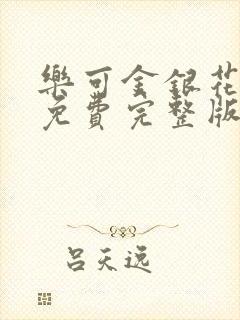 樂可金銀花
免費完整版
呂天逸